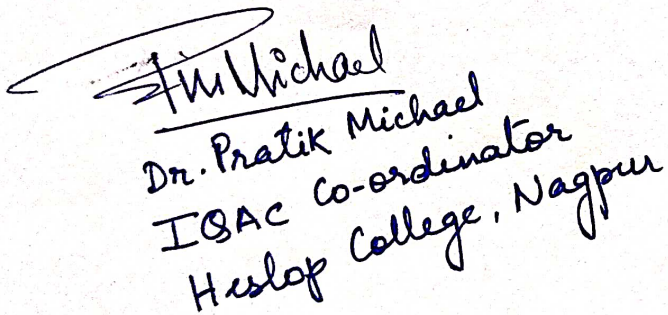 Michael
Dr. Pratik Michael
IQAC Co-ordinator
Heslop College, Nagpur